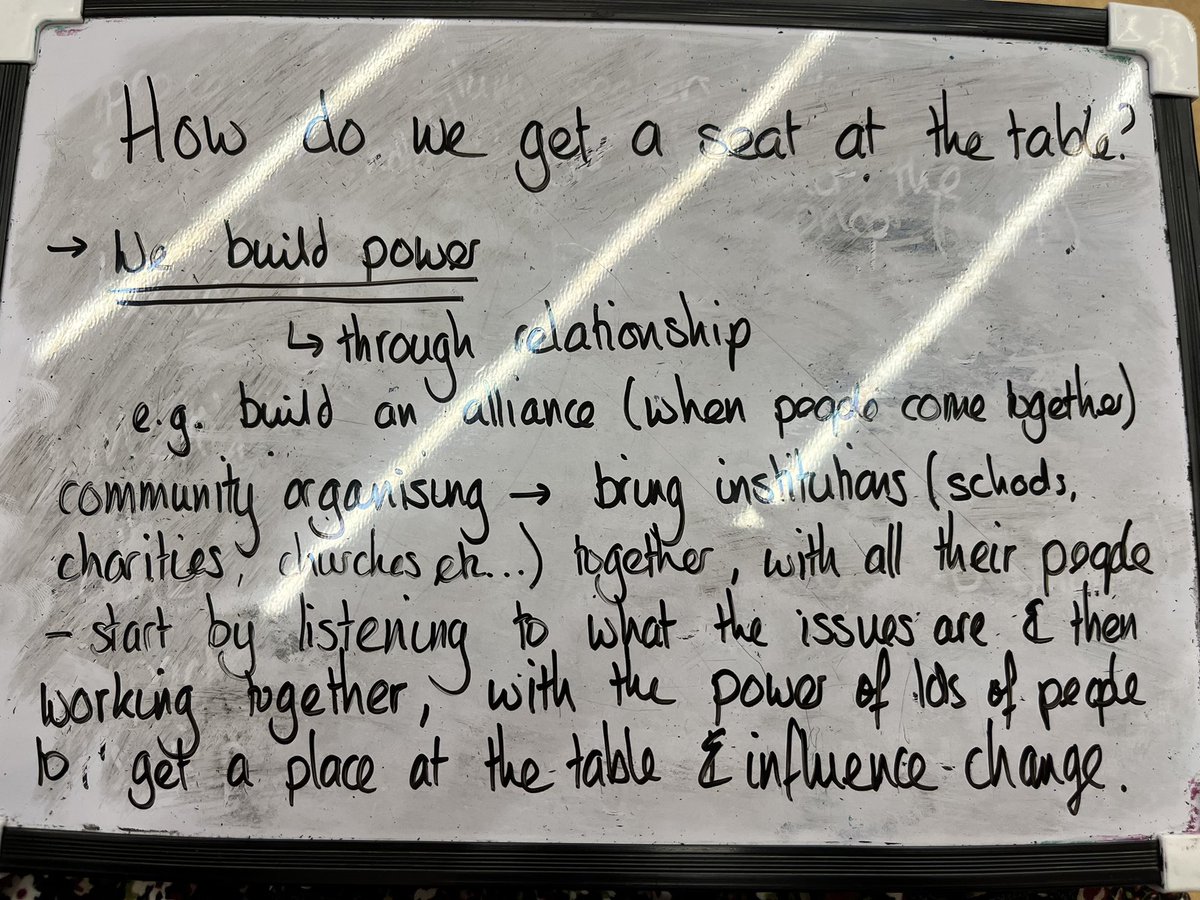 How do we get a seat at the table?
→ We build power
↳ through relationship
e.g. build an alliance (when people come together)
community organising → bring institutions (schools,
charities, churches, etc...) together, with all their people
- start by listening to what the issues are & then
working together, with the power of lots of people
to get a place at the table & influence change.